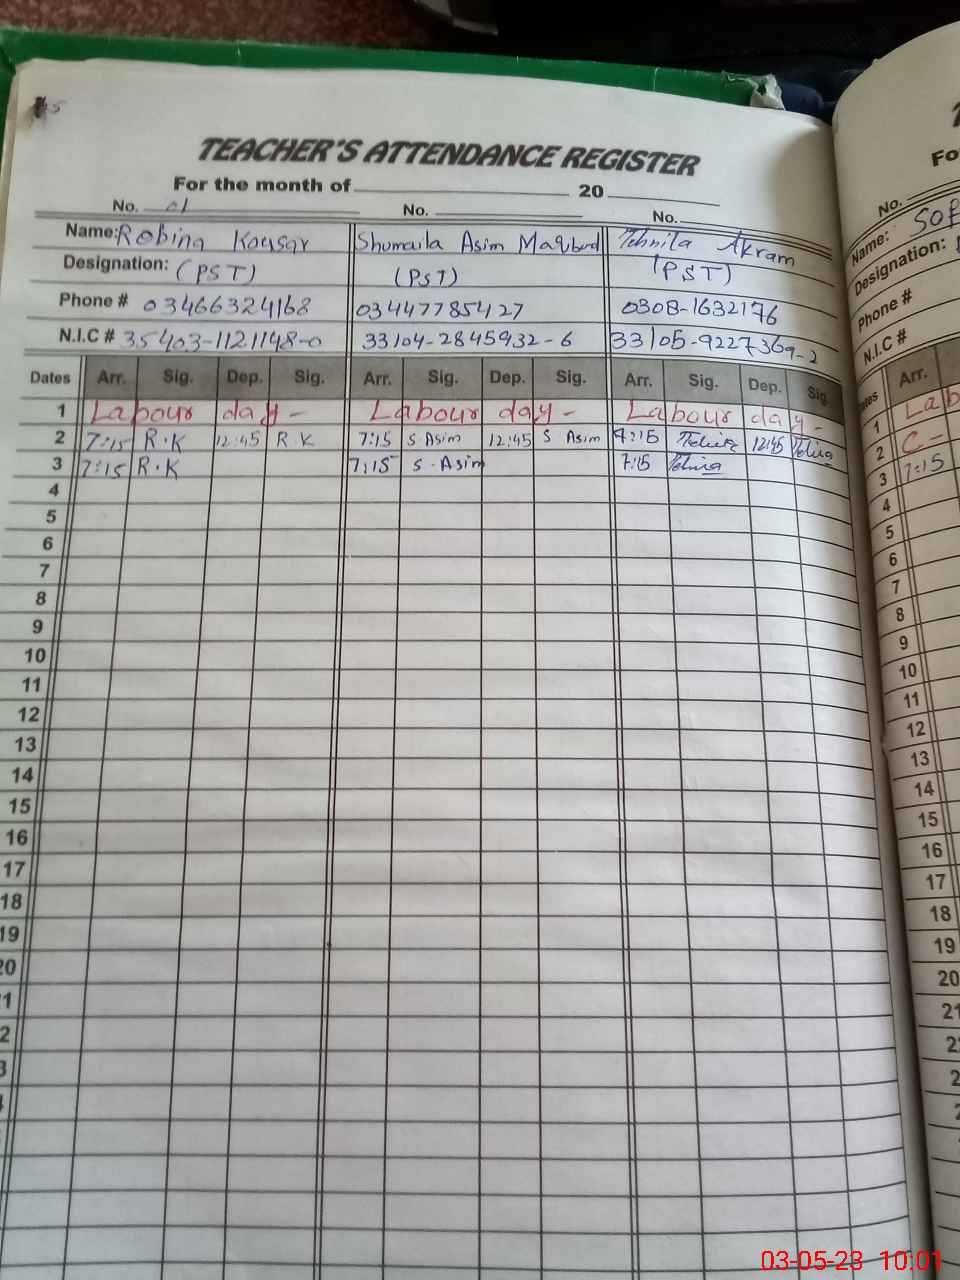 TEACHER'S ATTENDANCE REGISTER
For the month of 20
No. 01 No. No.
Name: Robina Kousar Shumaila Asim Maqbool Tehnila Akram
Designation: (PST) (PST) (PST)
Phone # 03466324168 03447785427 0308-1632176
N.I.C # 35403-1121148-0 33104-2845932-6 33105-9227369-2
Dates Arr. Sig. Dep. Sig. Arr. Sig. Dep. Sig. Arr. Sig. Dep. Sig.
1 Labour day - Labour day - Labour day -
2 7:15 R.K 12:45 R.K 7:15 S.Asim 12:45 S Asim 7:15 12:45
3 7:15 R.K 7:15 S.Asim 7:15
4
5
6
7
8
9
10
11
12
13
14
15
16
17
18
19
20
No.
Name:
Designation:
Phone #
N.I.C #
Arr.
1
2 C-
3 7:15
4
5
6
7
8
9
10
11
12
13
14
15
16
17
18
19
20
03-05-23 10:01